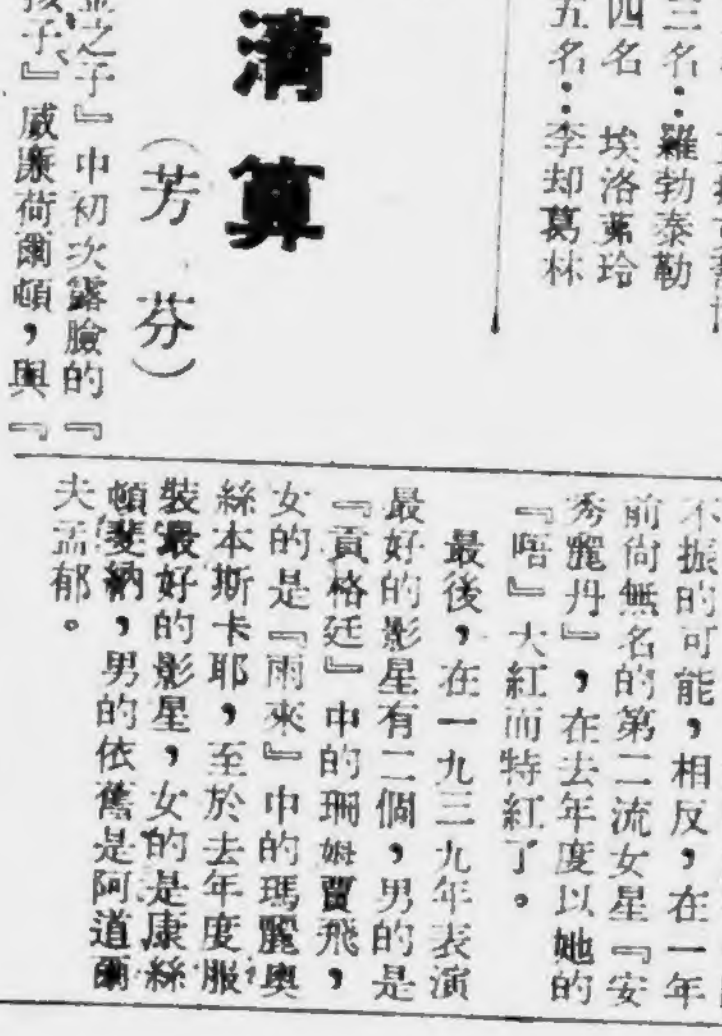 三名：羅勃泰勒
四名　埃洛茀玲
五名：李却葛林
清算
（芳　芬）
之子』中初次露臉的『
孩子』威廉荷爾頓，與『
不振的可能，相反，在一年
前尙無名的第二流女星『安
秀麗丹』，在去年度以她的
『唔』大紅而特紅了。
最後，在一九三九年表演
最好的影星有二個，男的是
『貢格廷』中的珊姆賈飛，
女的是『雨來』中的瑪麗奧
絲本斯卡耶，至於去年度服
裝最好的影星，女的是康絲
頓斐納，男的依舊是阿道爾
夫孟郁。